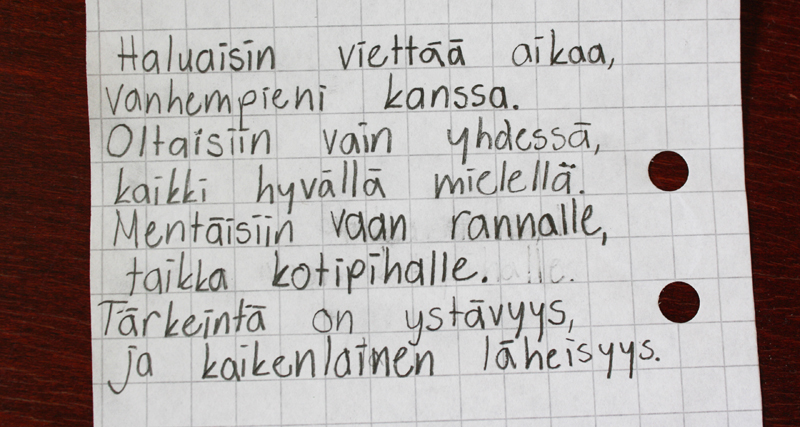 Haluaisin viettää aikaa,
Vanhempieni kanssa.
Oltaisiin vain yhdessä,
kaikki hyvällä mielellä.
Mentäisiin vaan rannalle,
taikka kotipihalle.
Tärkeintä on ystävyys,
ja kaikenlainen läheisyys.